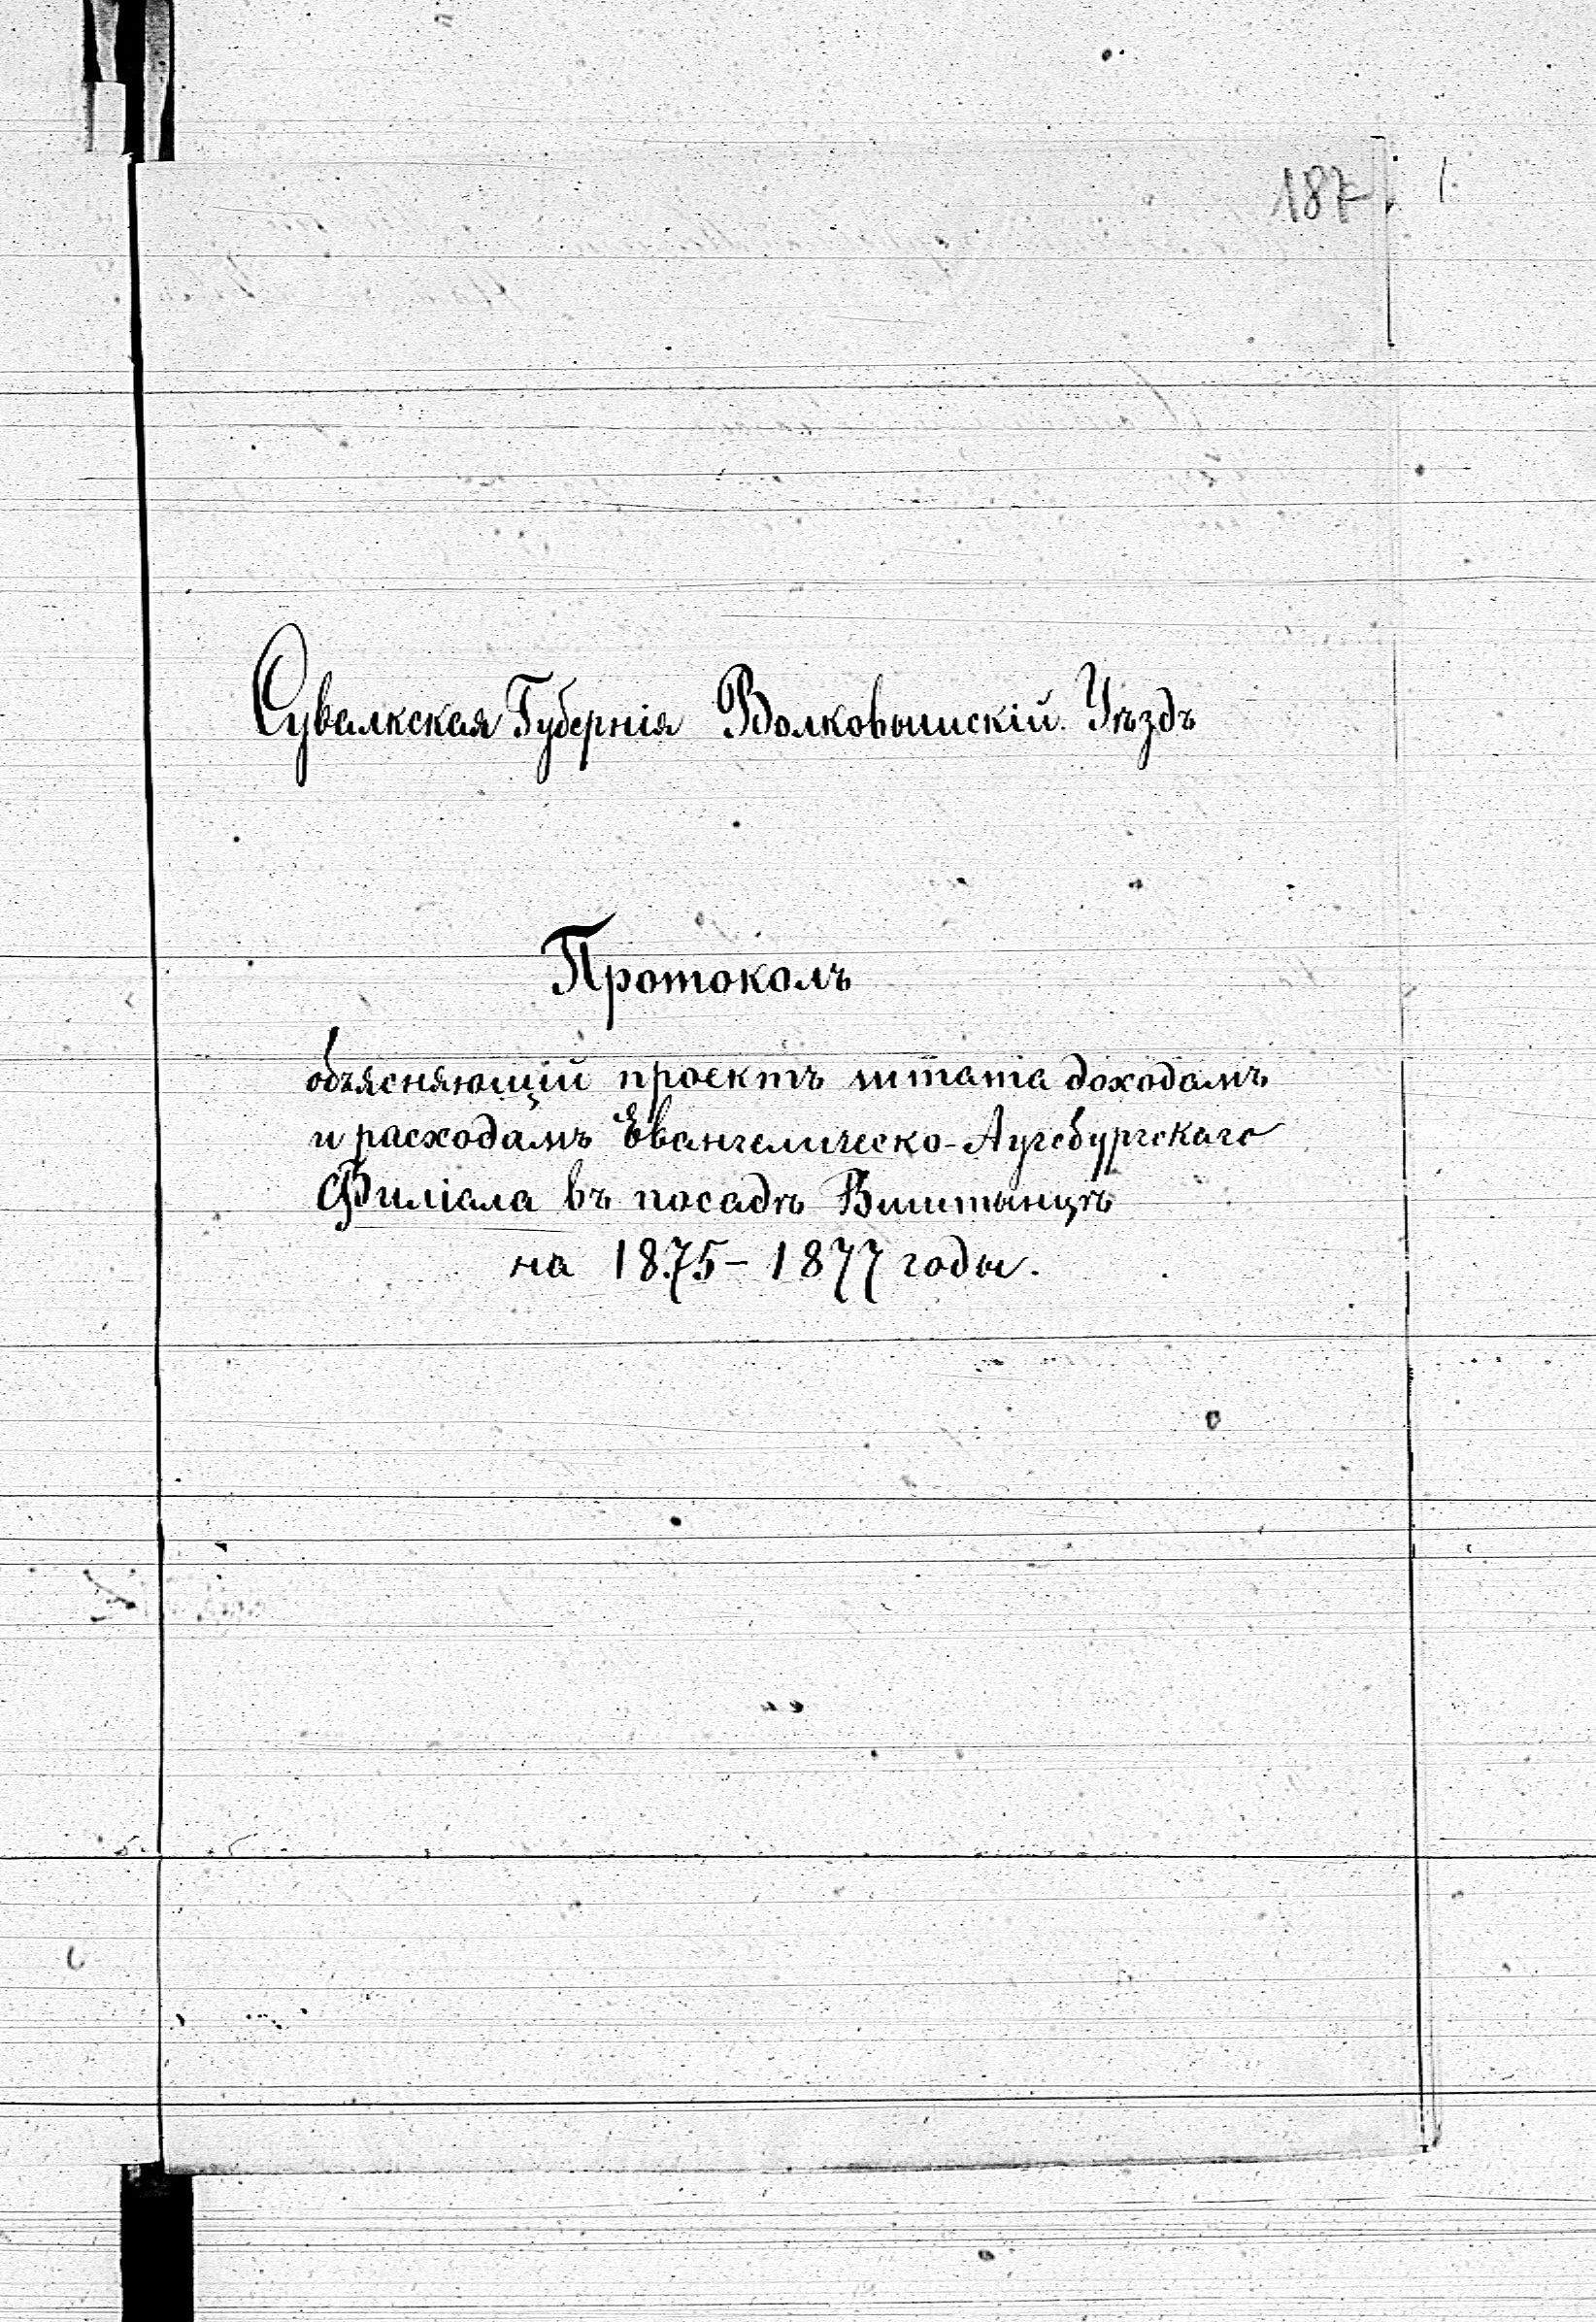 187
Сувалкская Губернія Волковышскій Уѣздъ
Протоколъ
объясняющій проектъ штата доходамъ
и расходамъ Евангелическо-Аугсбургскаго
Филіала въ посадѣ Виштынцѣ
на 1875-1877 годы.